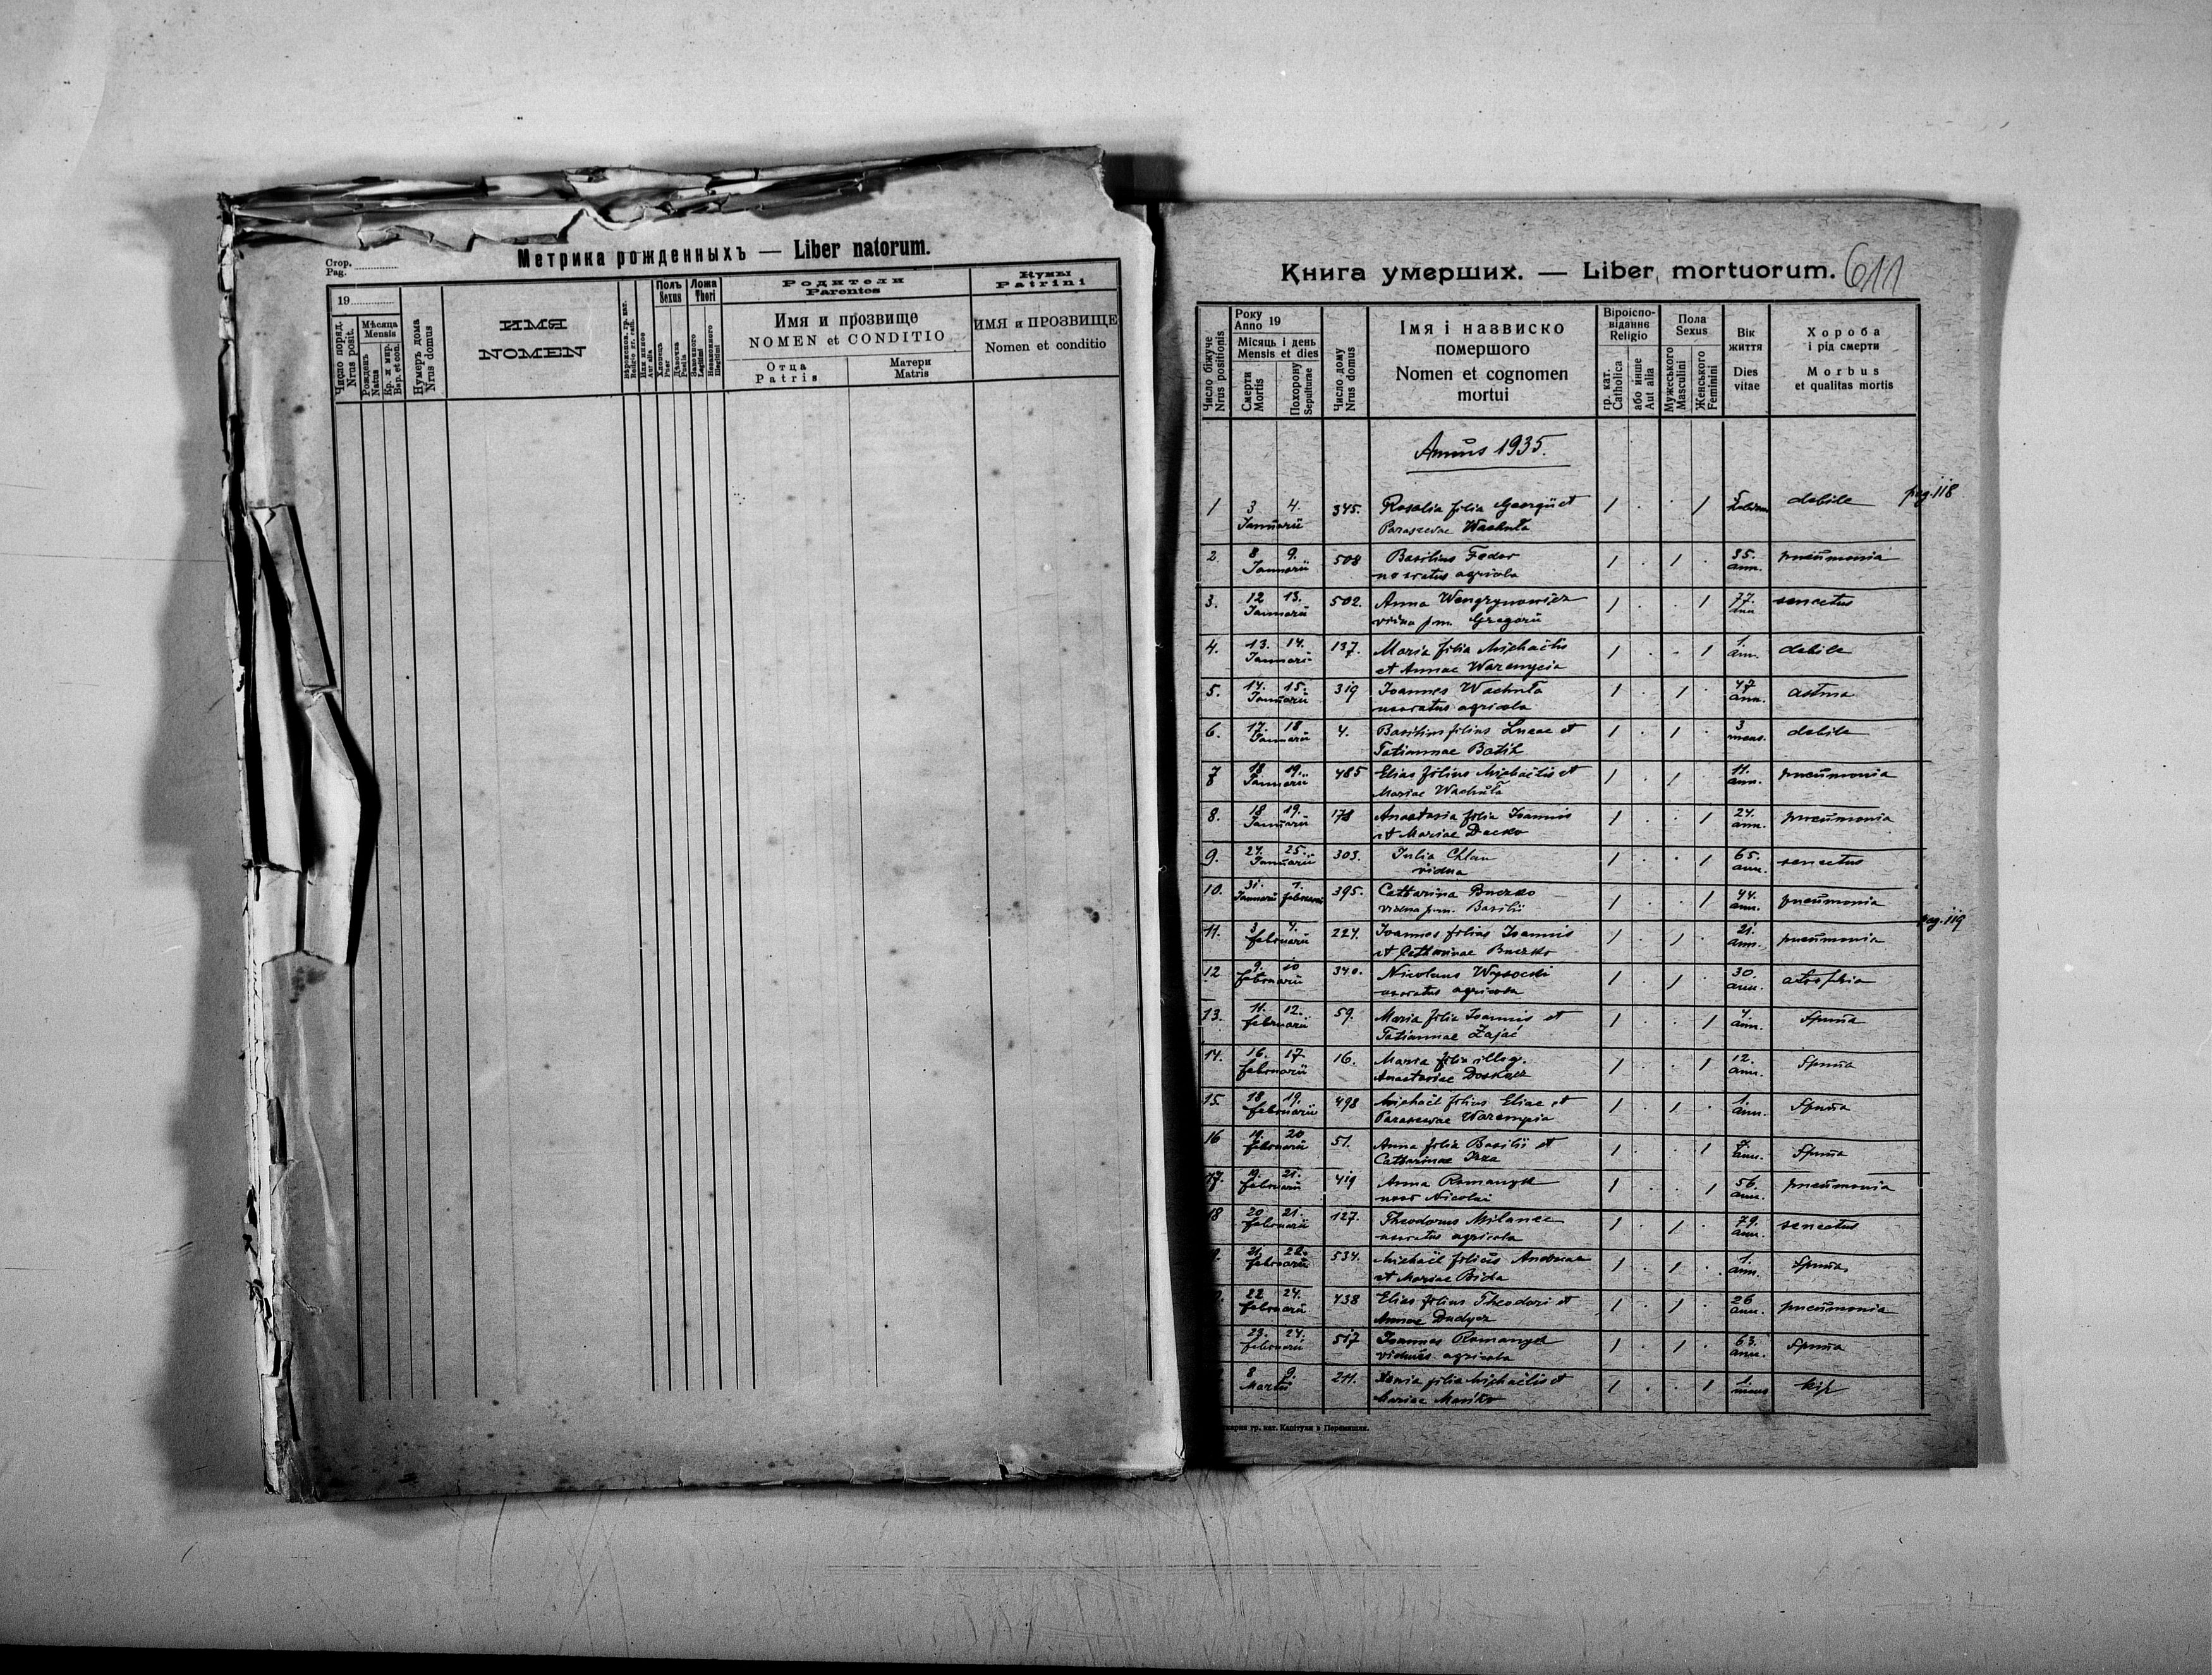 Метрика рожденныхъ — Liber natorum.
Стор.
Pag.
19
Число поряд.
Nrus posit.
Мѣсяца
Mensis
Рожденъ
Natus
Кр. и мир.
Bap. et con.
Нумеръ дома
Nrus domus
ИМЯ
NOMEN
Полъ
Sexus
Ложа
Thori
Родители
Parentes
Имя и прозвище
NOMEN et CONDITIO
Отца
Patris
Матери
Matris
Кумы
Patrini
ИМЯ и ПРОЗВИЩЕ
Nomen et conditio
Книга умерших. — Liber mortuorum. 611
Число біжуче
Nrus positionis
Року
Anno 19
Місяць і день
Mensis et dies
Смерти
Mortis
Похорону
Sepulturae
Число дому
Nrus domus
Імя і назвиско
помершого
Nomen et cognomen
mortui
Віроіспо-
віданнє
Religio
гр. кат.
Catholica
або инше
Aut alia
Пола
Sexus
Мужеського
Masculini
Женського
Feminini
Вік
життя
Dies
vitae
Хороба
і рід смерти
Morbus
et qualitas mortis
Annus 1935.
1 3 4. 345. Rosalia filia Georgii et 1 . . 1 5 debile pag. 118
Januarii Parascevae Wachuła
2 8 9. 508 Basilius Fedor 1 . 1 . 35. pneumonia
Januarii agricola ann.
3. 12 13. 502. Anna Wengrynowicz 1 . . 1 77. senectus
Januarii vidua p.m. Gregorii ann.
4. 13. 14. 137. Maria filia Michaëlis 1 . . 1 1. debile
Januarii et Annae Waremycia ann.
5. 14. 15. 319 Joannes Wachuła 1 . 1 . 47 astma
Januarii uxoratus agricola ann.
6. 17. 18 4. Basilius filius Lucae et 1 . 1 . 3 debile
Januarii Tatiannae Batih mens.
7 18 19. 485 Elias filius Michaëlis et 1 . 1 . 11. pneumonia
Januarii Mariae Wachuła ann.
8. 18 19. 178 Anastasia filia Joannis 1 . . 1 24. pneumonia
Januarii et Mariae Dacko ann.
9. 24. 25. 303. Julia Chlan 1 . . 1 65. senectus
Januarii vidua ann.
10. 31. 1. 395. Catharina Buczko 1 . . 1 44. pneumonia
Januarii februarii vidua p.m. Basilii ann.
11. 3 4. 224. Joannes filius Joannis 1 . 1 . 21. pneumonia pag. 119
februarii et Catharinae Buczko ann.
12 9. 10 340. Nicolaus Wysocki 1 . 1 . 30. atrophia
februarii uxoratus agricola ann.
13. 11. 12. 59. Maria filia Joannis et 1 . . 1 4 Spuma
februarii Tatiannae Zajać ann.
14. 16. 17 16. Maria filia illeg. 1 . . 1 12. Spuma
februarii Anastasiae ann.
15. 18. 19. 498 Michaël filius Eliae et 1 . 1 . 1. Spuma
februarii Parascevae Waremycia ann.
16 19. 20 51. Anna filia Basilii et 1 . . 1 7 Spuma
februarii Catharinae ann.
17. 19. 21. 419 Anna Romanyk 1 . . 1 56. pneumonia
februarii uxor Nicolai ann.
18 20 21. 127. Theodorus Milanec 1 . 1 . 79. senectus
februarii uxoratus agricola ann.
9. 21. 22. 534. Michaël filius Andreae 1 . 1 . 1. Spuma
februarii et Mariae Bida ann.
0. 22 24. 438 Elias filius Theodori et 1 . 1 . 26 pneumonia
februarii Annae Dudycz ann.
23. 24. 517 Joannes Romanyk 1 . 1 . 63. Spuma
februarii viduus agricola ann.
8 9. 211. Xenia filia Michaëlis et 1 . . 1 1. kir
Martii Mariae Masiko mens
гр. кат. Капітули в Перемишли.